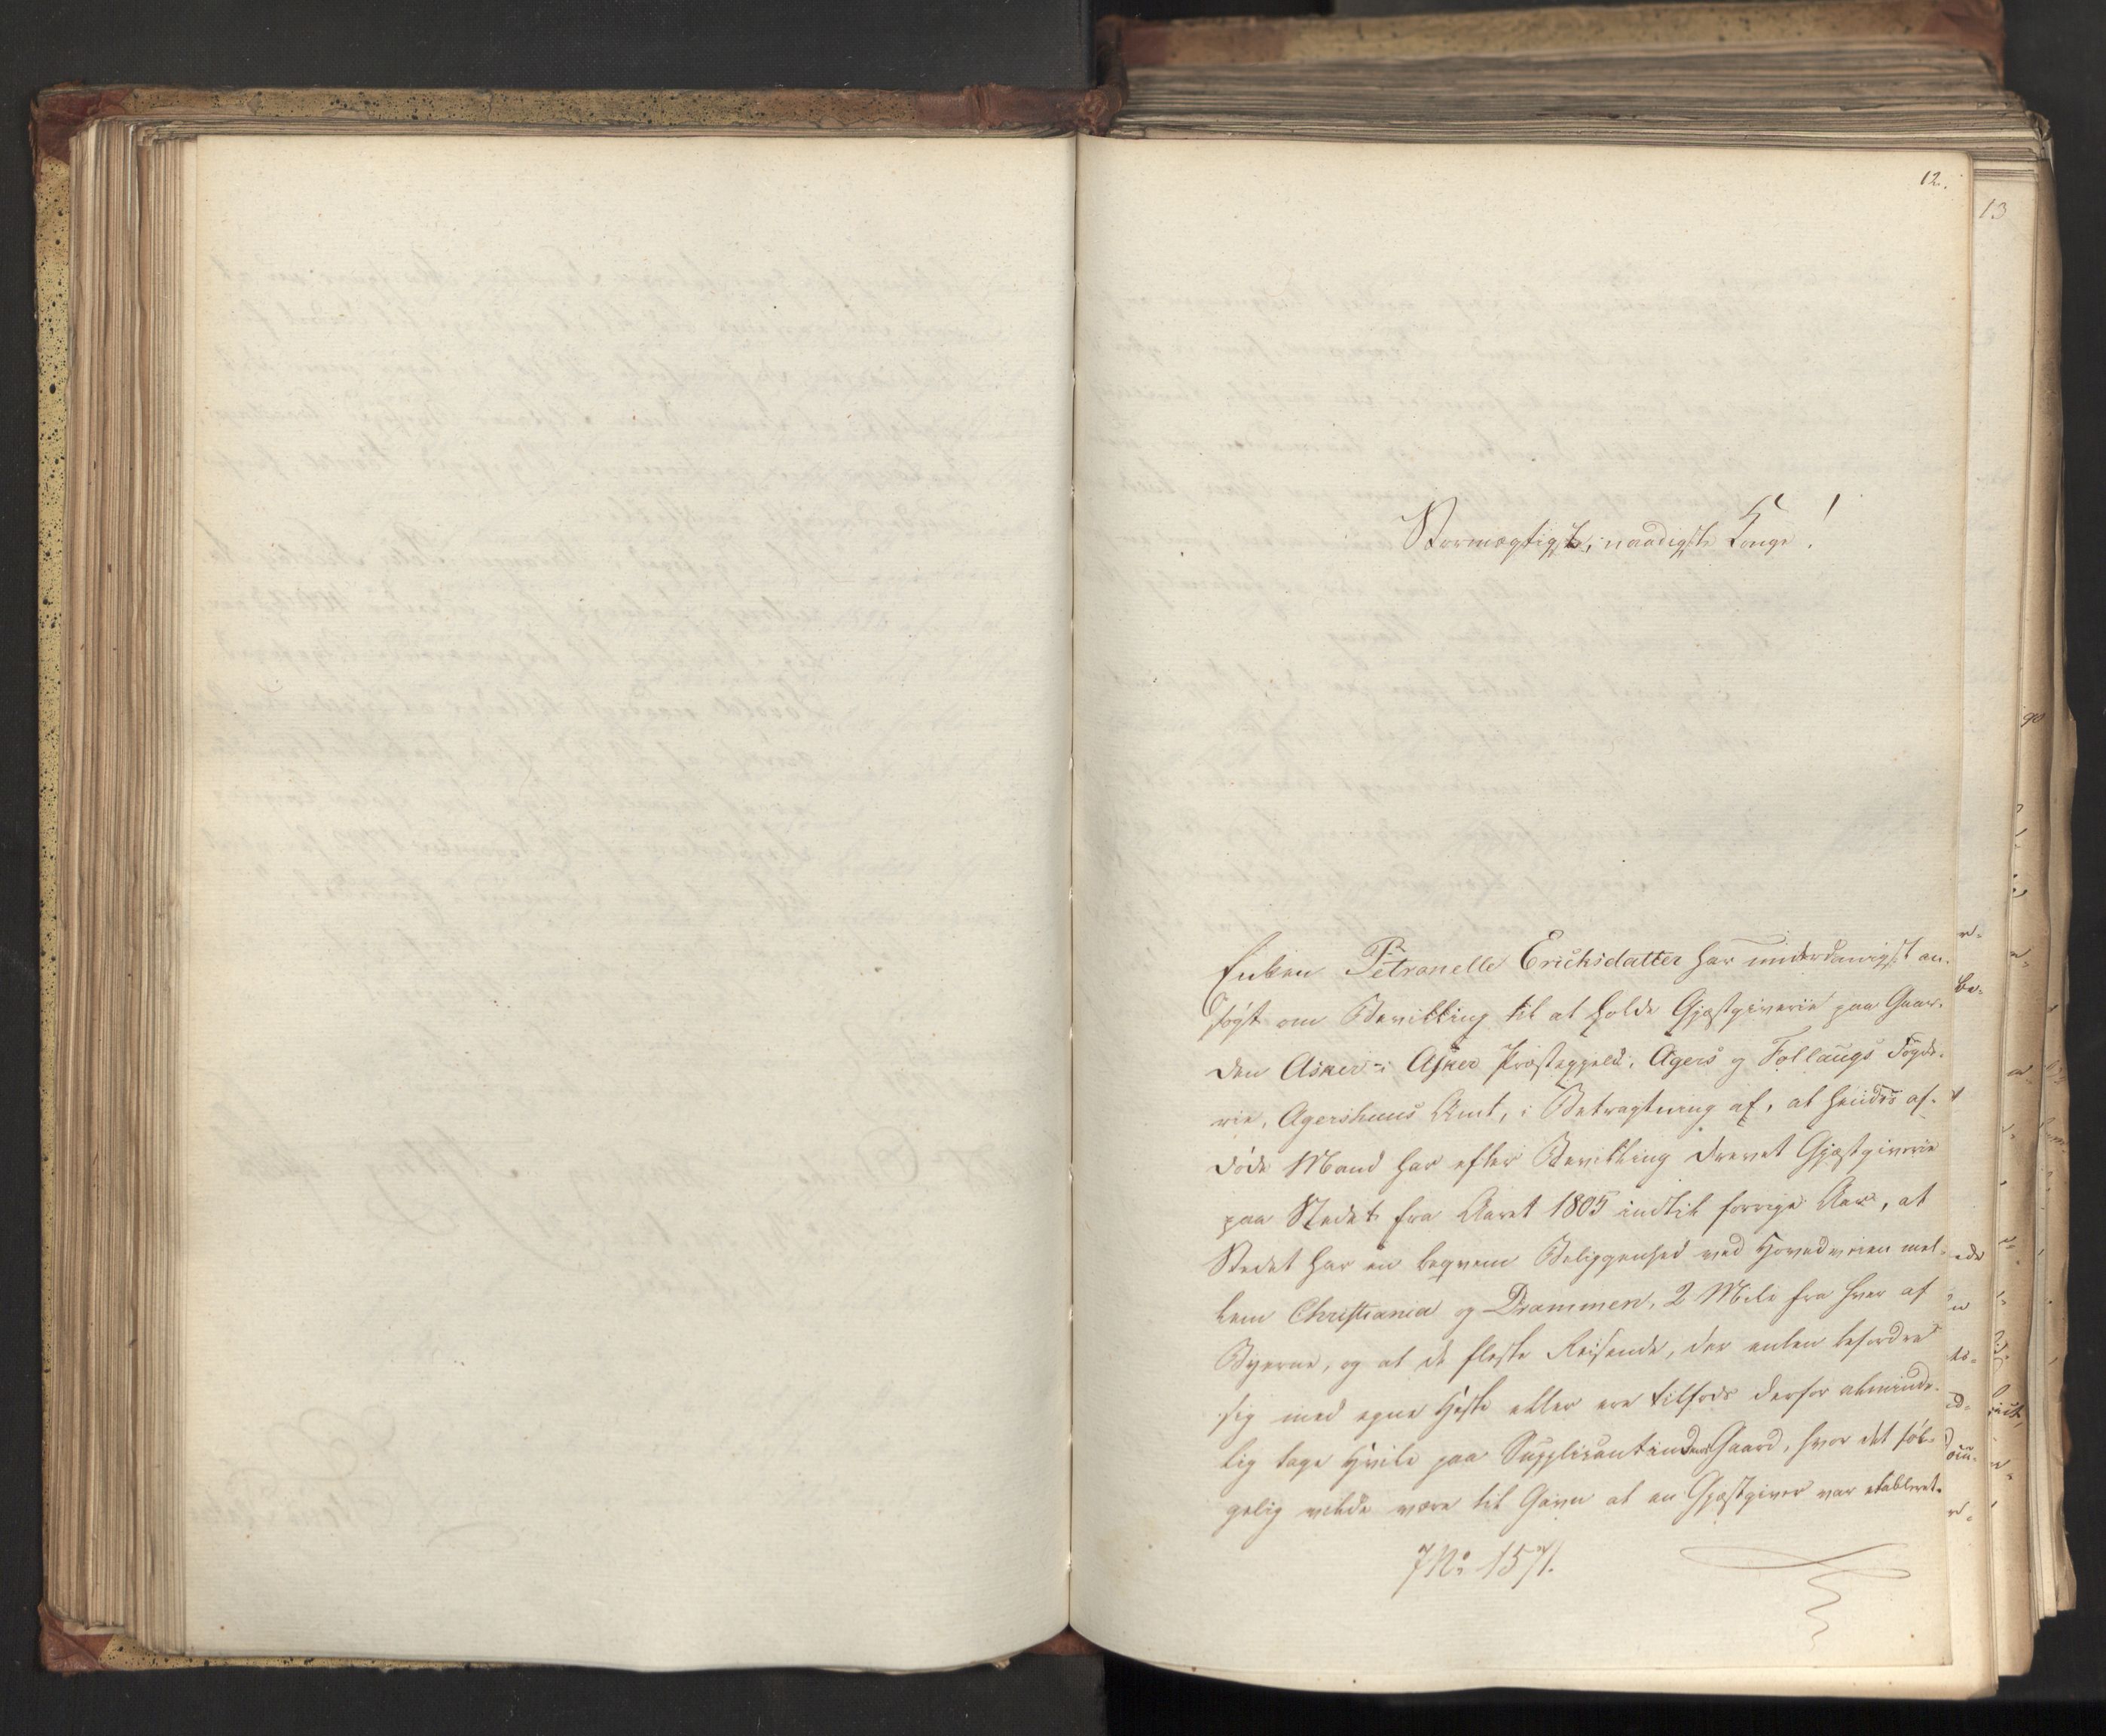 12.
13
Stormægtigste, naadigste Konge!
Enken Petronelle Ericksdatter har underdanigst an-
søgt om Bevilling til at holde Gjæstgiverie paa Gaar-
den Asker i Asker Præstegjeld, Agers og Follaugs Fogde-
rie, Agershuus Amt, i Betragtning af, at hendes af-
døde Mand har efter Bevilling drevet Gjæstgiverie
paa Stedet fra Aaret 1805 indtil forrige Aar, at
Stedet har en beqvem Beliggenhed ved Hovedveien mel-
lem Christiania og Drammen, 2 Mile fra hver af
Byerne, og at de fleste Reisende, der enten befordre
sig med egne Heste eller ere tilfods derfor alminde-
lig tage Hvile paa Supplicantindens Gaard, hvor det føl-
gelig vilde være til Gavn at en Gjæstgiver var etableret.
JNo 1571.